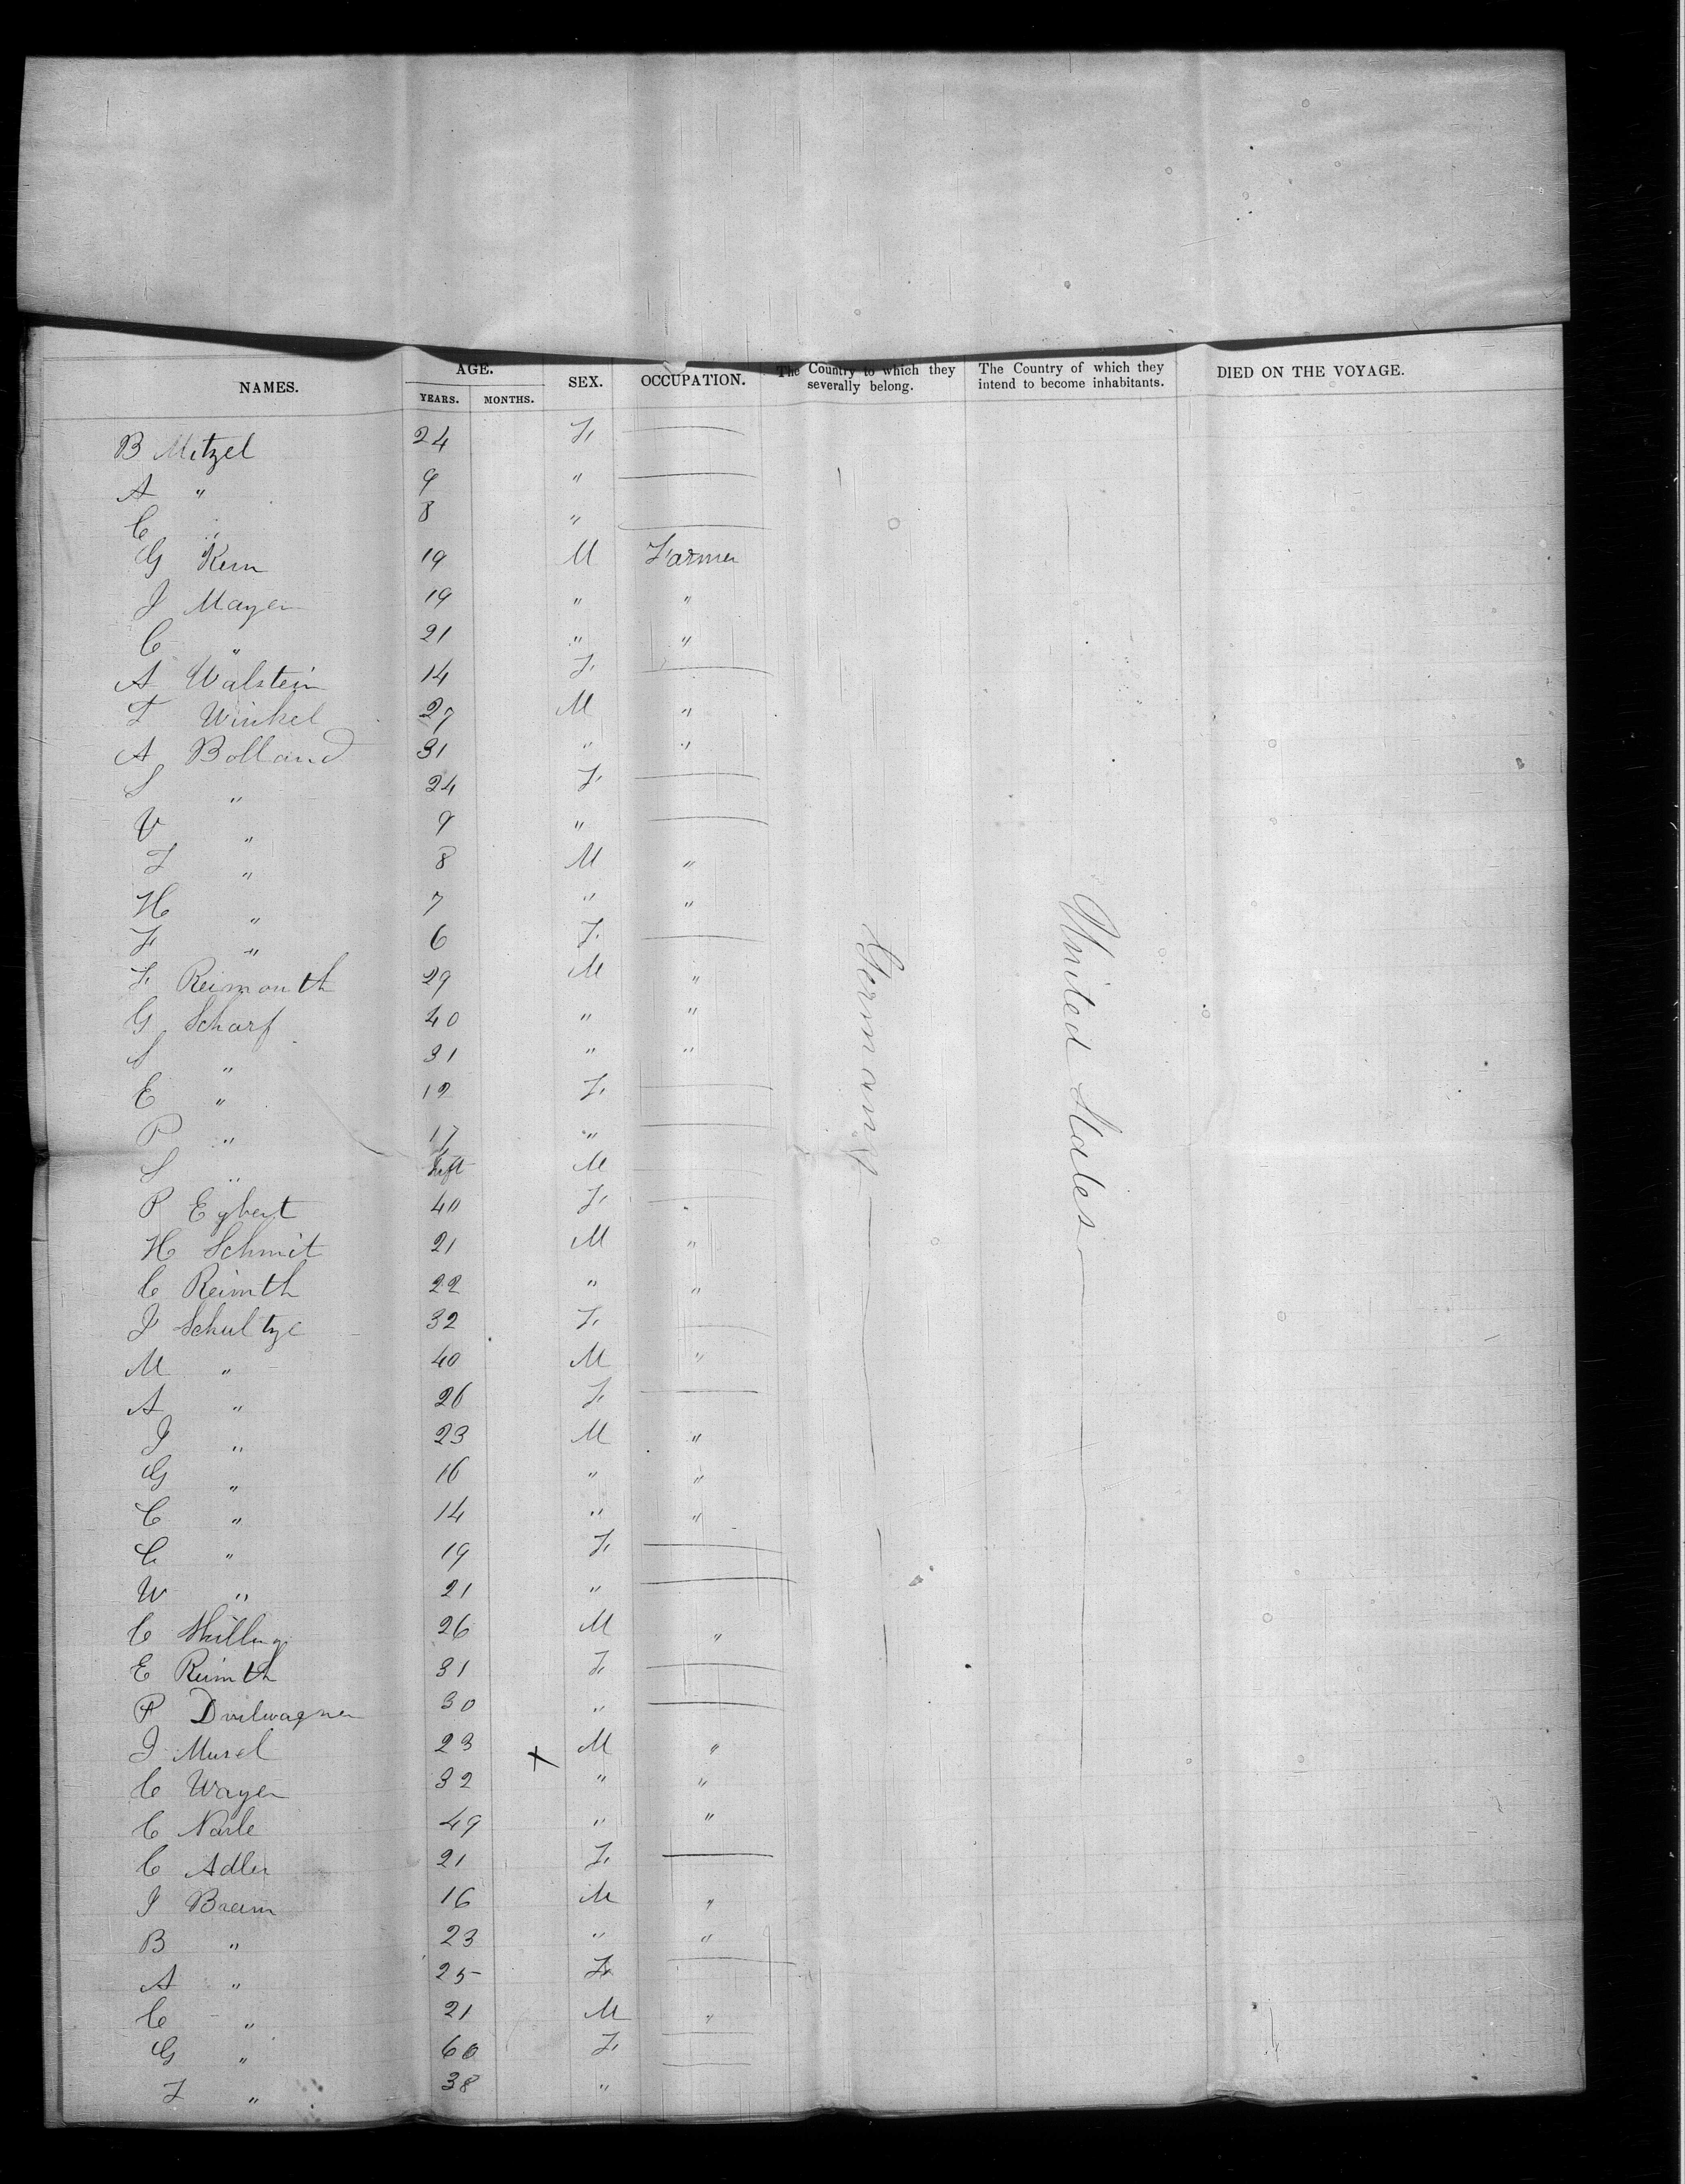 NAMES. AGE. YEARS. MONTHS. SEX. OCCUPATION. The Country to which they severally belong. The Country of which they intend to become inhabitants. DIED ON THE VOYAGE.
B Mitzel 24 F. ——
A " 9 " ——
C " 8 " ——
G Kern 19 M Farmer
J Mayer 19 " "
C " 21 " "
A Walstein 14 F. ——
F Winkel 27 M "
A Bolland 31 " "
S " 24 F. ——
V " 9 " ——
F " 8 M "
H " 7 " "
F. " 6 F. ——
F. Reimouth 29 M "
G Scharf 40 " "
S " 31 " "
E " 12 F. ——
P " 17 " ——
S " Inft M ——
P Egbert 40 F. ——
H Schmit 21 M "
C Reimth 22 " "
J Schultze 32 F. ——
M " 40 M "
A " 26 F. ——
J " 23 M "
G " 16 " "
C " 14 " "
C " 19 F. ——
W " 21 " ——
C 26 M "
E Reimth 31 F. ——
P 30 " ——
J Musel 23 X M "
C Wayer 32 " "
C 49 " "
C Adler 21 F. ——
J Braun 16 M "
B " 23 " "
A " 25 F. ——
C " 21 M "
G " 60 F. ——
F " 38 " ——
Germany
United States